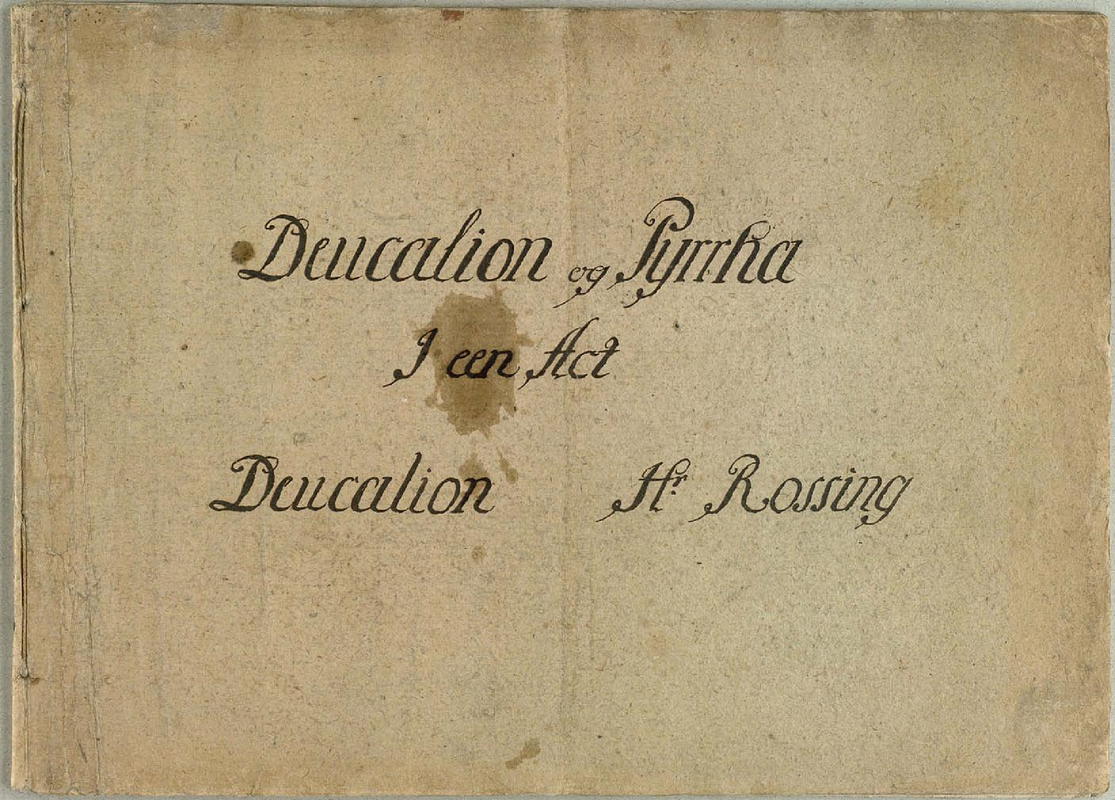 Deucalion og Pyrrha
I een Act
Deucalion Hr. Rossing